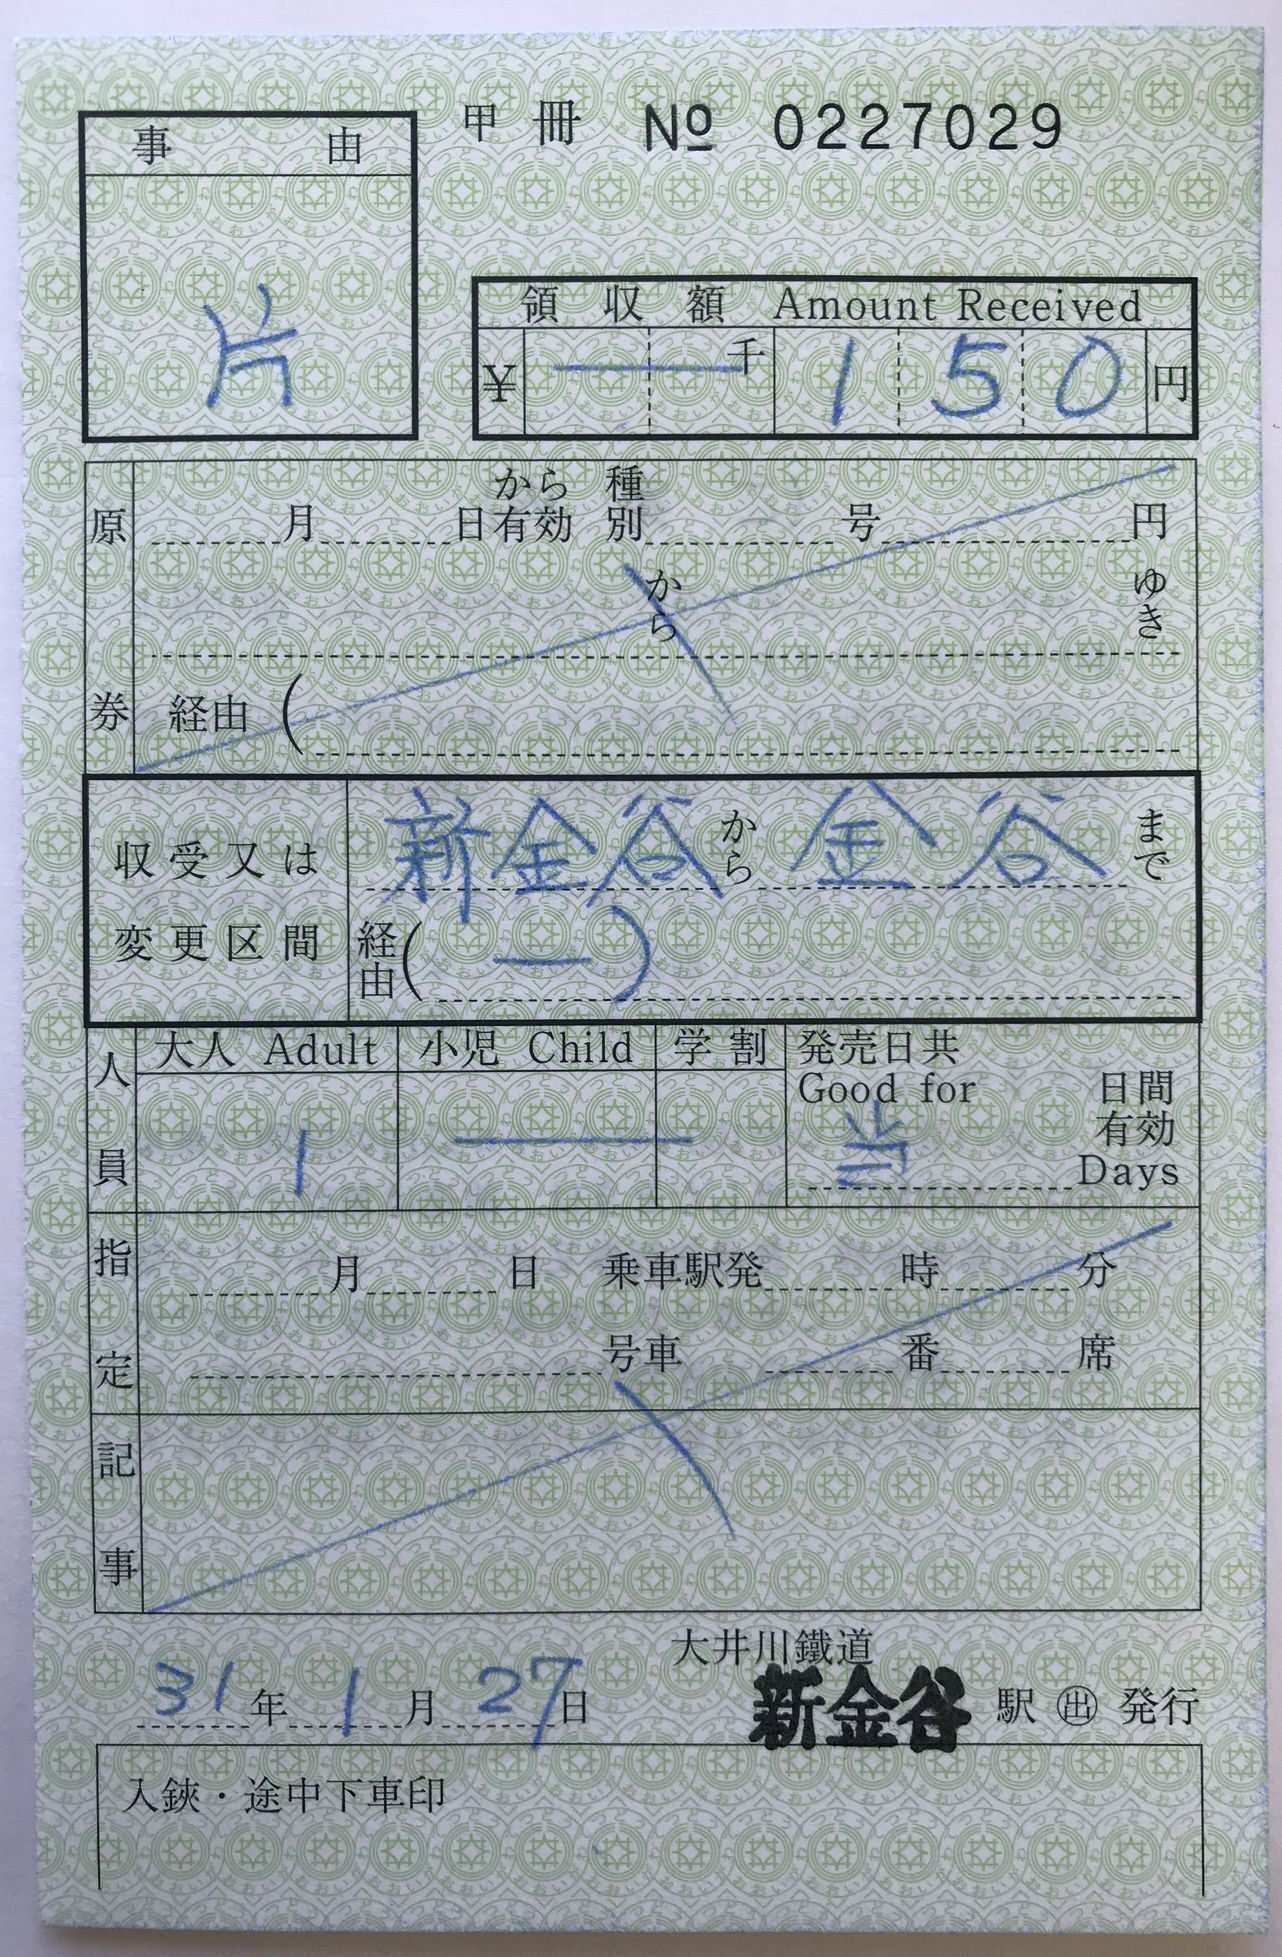 甲 冊 № 0227029
事 由
片
領 収 額 Amount Received
¥ 一 千 1 5 0 円
原券
月 日から有効 種別 号 円
から ゆき
経由 (
収受又は変更区間
新金谷 から 金谷 まで
経由 ( 一 )
人員
大人 Adult 小児 Child 学割 発売日共
Good for 日間有効
1 当 Days
指定
月 日 乗車駅発 時 分
号車 番 席
記事
大井川鐵道
31年 1月 27日 新金谷 駅 ㊞ 発行
入鋏・途中下車印